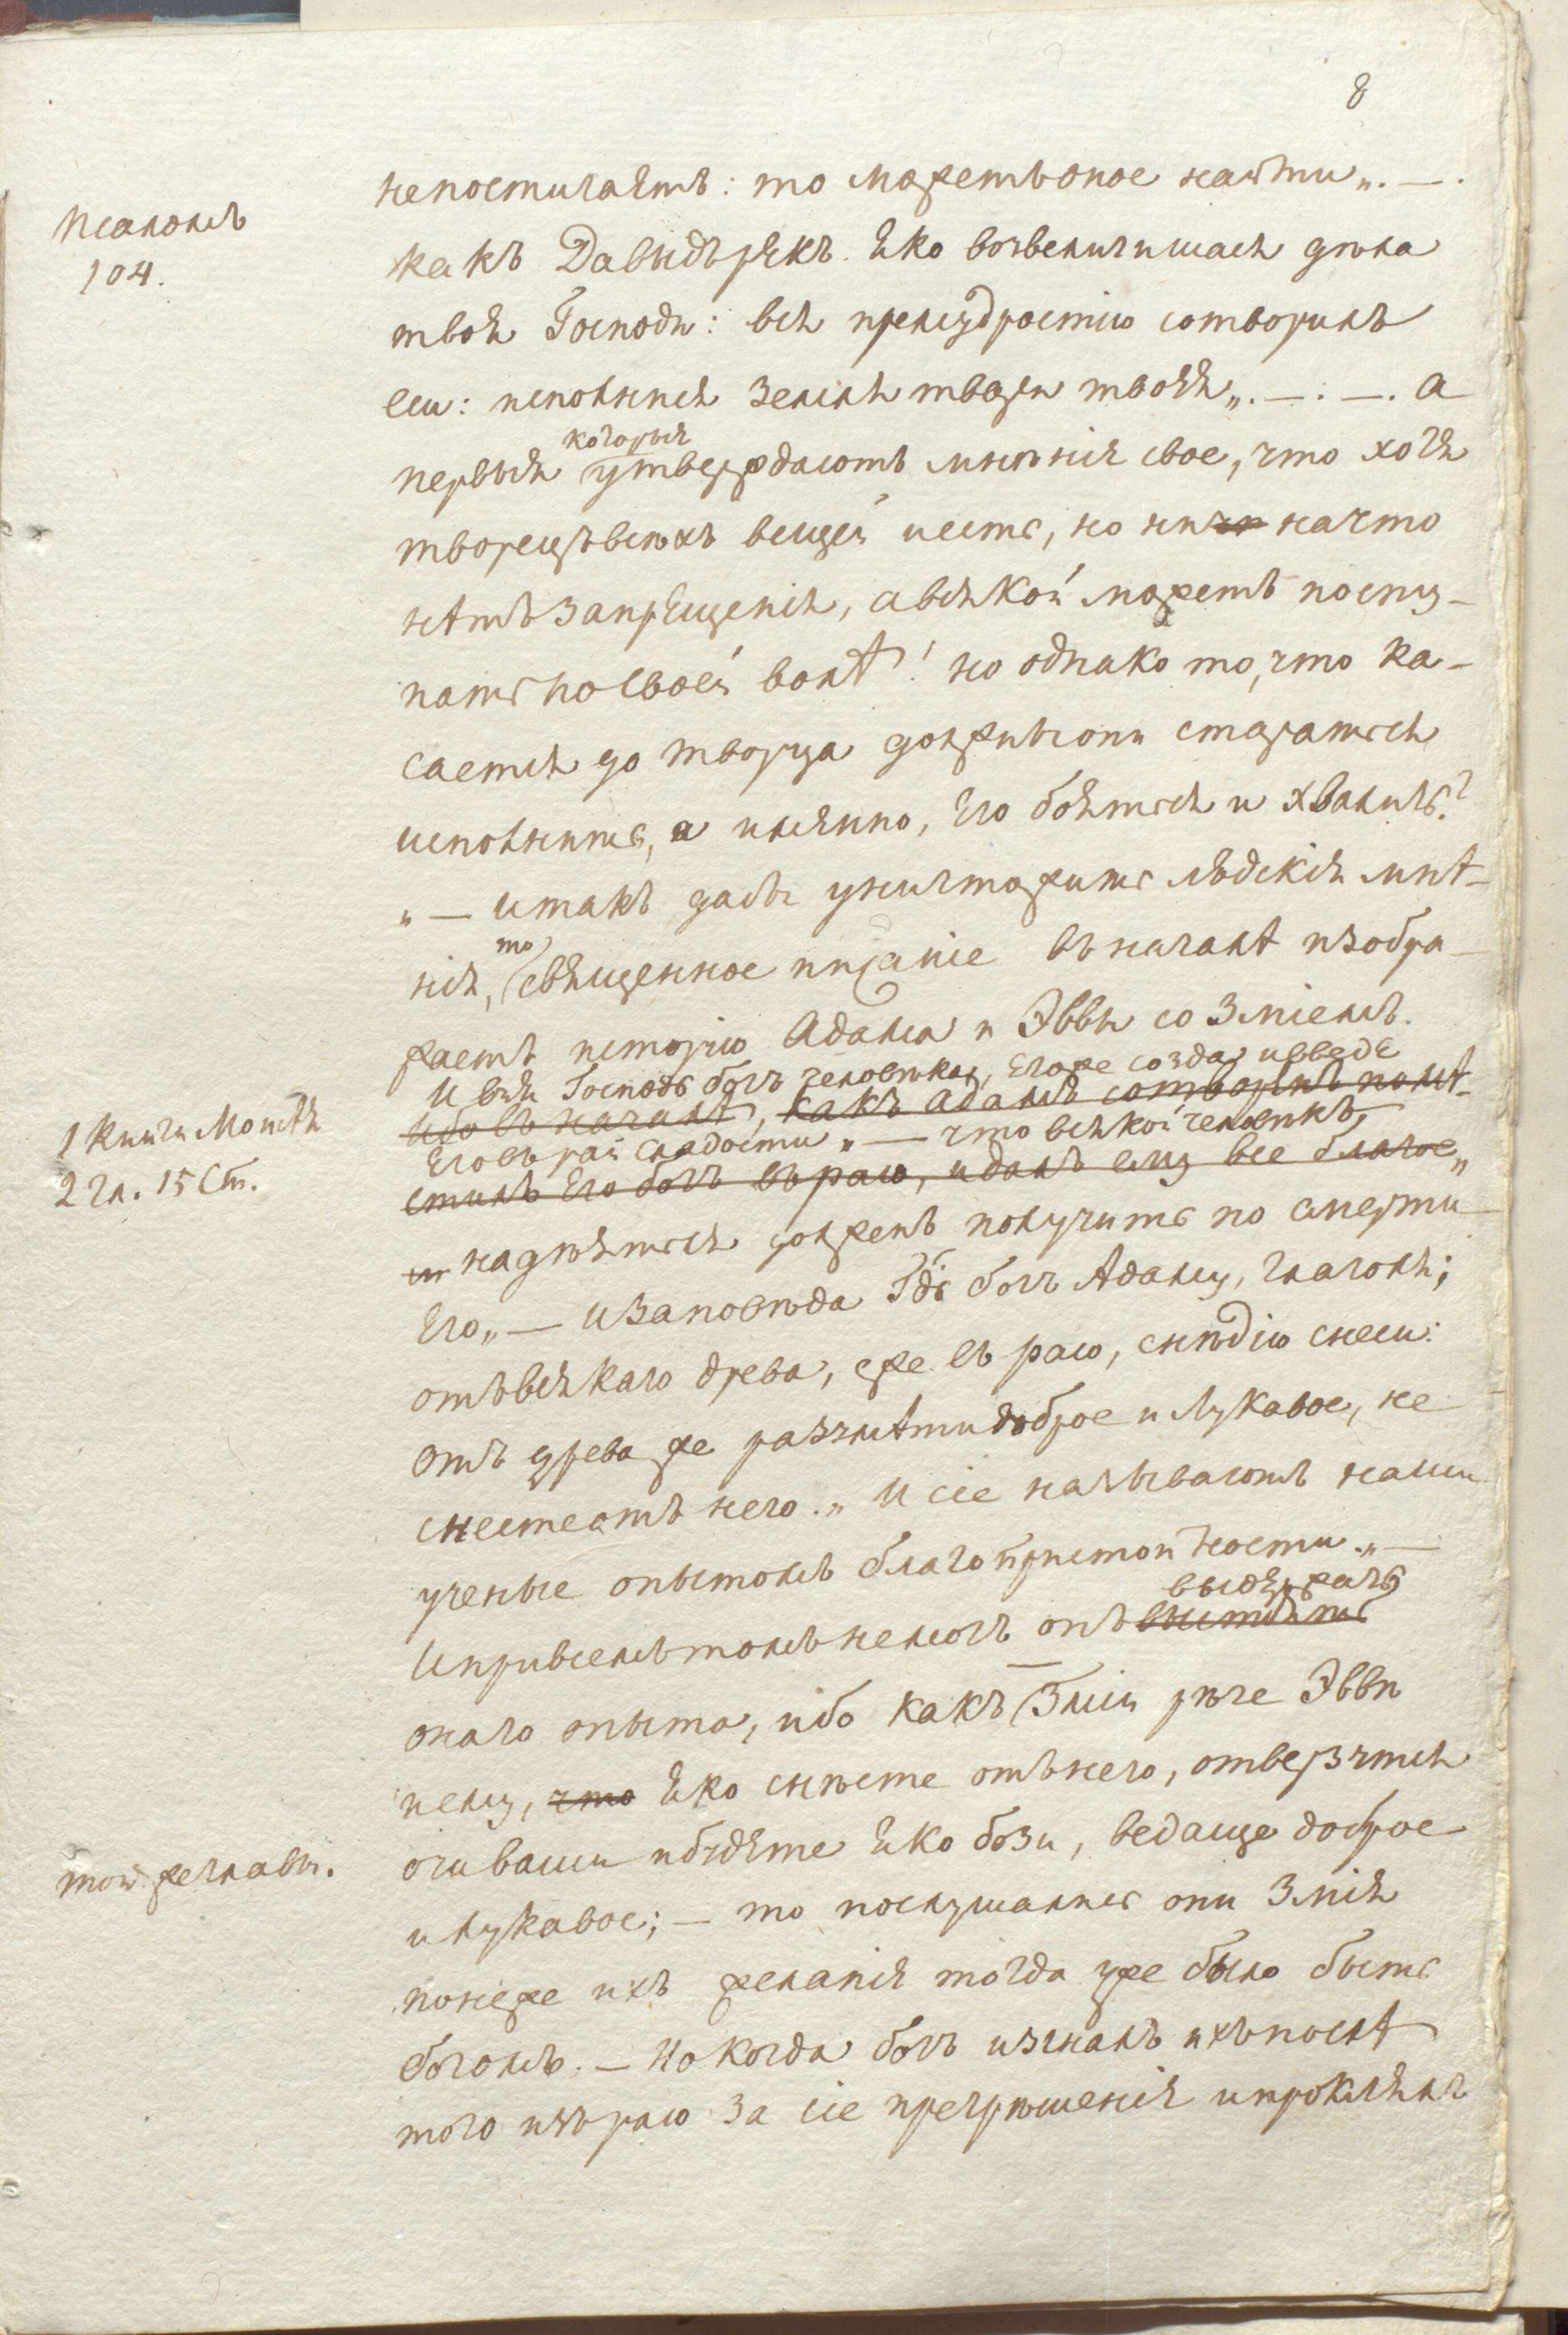 8
непостигаятъ: то можетъ оное найти„.—.
Псаломъ
104.
какъ Давыдъ рѣкъ. Яко возвеличишася дѣла
твоя Господи: вся премудростію сотворилъ
еси: исполнися Земля твари твоея„.—.—. а
которыя
первыя утверждаютъ мнѣнія свое, что хотя
творецъ всѣхъ вещей иесть, но ни че начто
нѣтъ запрѣщенія, а всякой можетъ посту-
пать по своей волѣ! но однако то, что ка-
сается до творца должны они старатся
исполнить, а имянно, Его боятся и хвалить?
„— итакъ дабы уничтожить людскія мнѣ-
то
нія, священное писаніе въ началѣ изобра-
жаетъ исторію Адама и Эввы со Зміемъ.
И взя Господь богъ человѣка, егоже созда, и введе
ибо въ началѣ, какъ адамъ сотворенъ помѣ-
1 Книги Моисѣя
2 гл. 15 Ст.
Его въ рай сладости„ — что всякой человѣкъ,
стилъ Его богъ въ раю, и далъ ему все благое„
и надѣятся долженъ получить по смерти
Его„ — И Заповѣда Гдь богъ Адаму, глаголя;
отъ всякаго древа, еже въ раю, снѣдію снеси:
отъ древа же разумѣти доброе и Лукавое, не
снесте отъ него.„ И сіе называютъ наши
ученые опытомъ благопристойности.„—
выдержать
И при всемъ томъ не могъ онъ выстоять
онаго опыта, ибо какъ Змій рѣче Эввѣ
и ему, что яко снѣсте отъ него, отверзутся
очи ваши и будете яко бози, ведаще доброе
той же главы.
и лукавое; — то послушались они Змія
понеже ихъ желанія тогда уже было быть
богомъ. — Но когда богъ изгналъ ихъ послѣ
того изъ раю за сіе прегрѣшенія и проклялъ